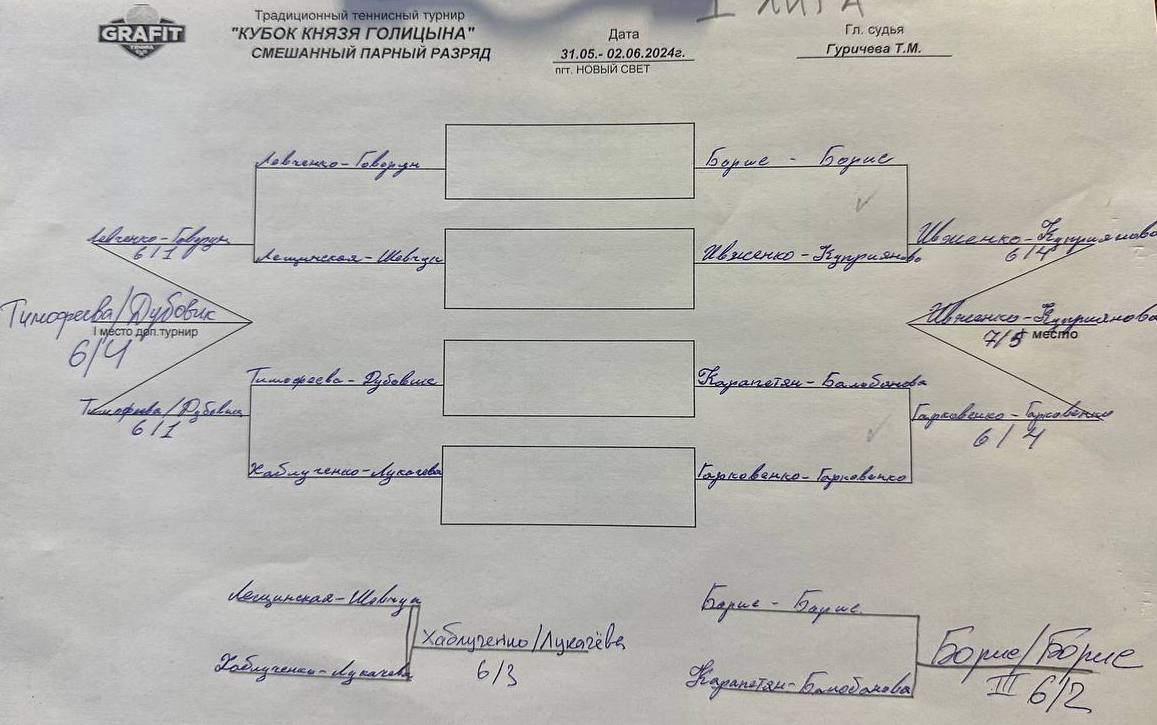 I ЛИГА
GRAFIT
Традиционный теннисный турнир
"КУБОК КНЯЗЯ ГОЛИЦЫНА"
СМЕШАННЫЙ ПАРНЫЙ РАЗРЯД
Дата
31.05.- 02.06.2024г.
пгт. НОВЫЙ СВЕТ
Гл. судья
Гуричева Т.М.
Левченко-Говорун
Борис - Борис
Левченко-Говорун
6/1
Лещинская-Шевчук
Ивженко-Куприянова
Ивженко-Куприянова
6/4
Тимофеева/Дубовик
I место доп.турнир
6/4
Ивженко-Куприянова
7/5 место
Тимофеева-Дубовик
Карапетян-Балобанова
Тимофеева/Дубовик
6/1
Гарковенко-Гарковенко
6/4
Хаблученко-Лукачева
Гарковенко-Гарковенко
Лещинская-Шевчук
Хаблученко/Лукачёва
6/3
Хаблученко-Лукачева
Борис - Борис
Борис/Борис
III 6/2
Карапетян-Балобанова